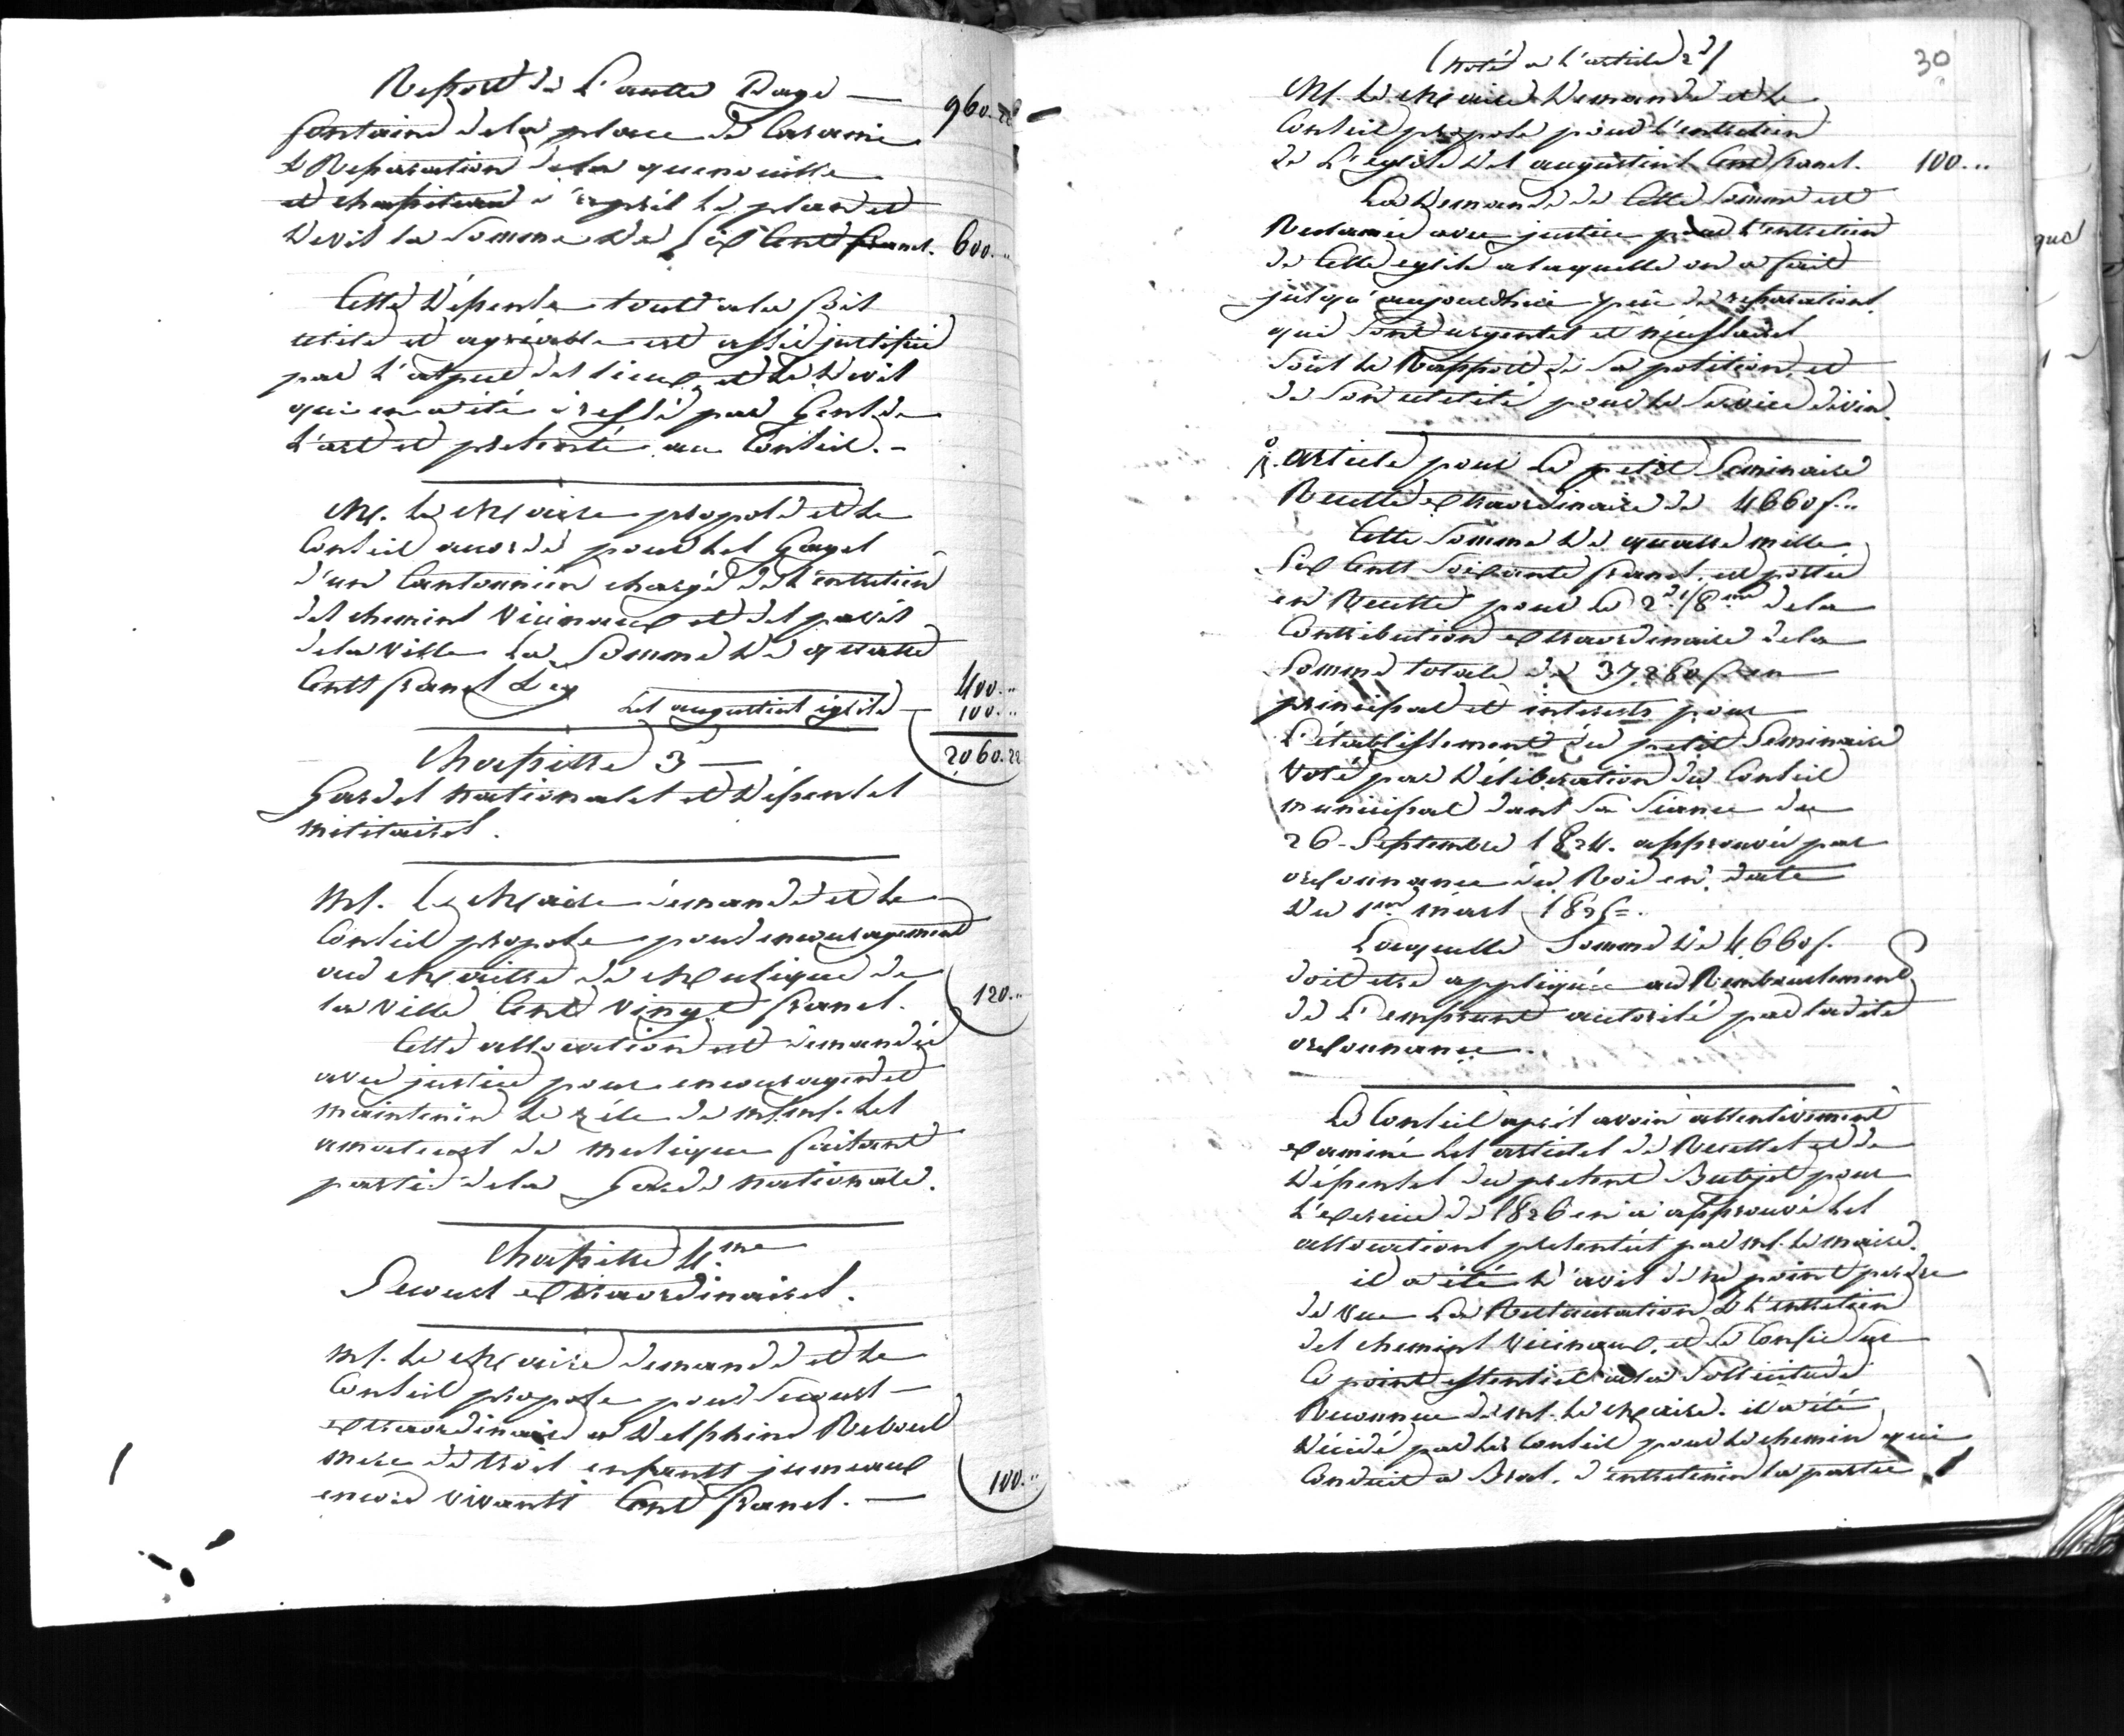 Report de L'autre Page — 960.22
fontaine de la place de Caramie
& Reparation de la quenouille
et chapiteau d'après le plan et
devis la somme de six Cent francs. 600...
Cette dépense tout a la fois
utile et agréable est assé justifiée
par l'aspect des lieux, et le devis
qui en a été dressé par Gens de
l'art et presenté au Conseil. -
Mr. Le Maire propose et le
Conseil accorde pour les Gages
d'un Cantonnier chargé de l'entretien
des chemins vicinaux et des pavés
de la ville la Somme de quatre
Cents francs Cy 400...
Les augustins église — 100...
2060.22
Chapitre 3 —
Gardes nationales et dépenses
militaires.
Mr. Le Maire demande et le
Conseil propose pour encouragement
au Maitre de Musique de
la ville Cent vingt francs. 120...
Cette allocation est demandée
avec justice pour encourager et
maintenir le zéle de mrs. les
amateurs de musique faisant
partie de la Garde nationale.
Chapitre 4.me
Secours extraordinaires.
Mr. Le Maire demande et le
Conseil propose pour Secours —
extraordinaire a Delphine Reboul
mere de trois enfants jumeaux
encore vivants Cent francs. — 100...
30
(noté a l'article 2d)
Mr. Le Maire Demande et le
Conseil propose pour l'entretien
de L'eglise des augustins Cent francs. 100...
La demande de Cette Somme est
Reclamée avec justice pour l'entretien
de Cette eglise a laquelle on a fait
jusqu'aujourdhui peu de reparations
qui sont urgentes et necessaires
sous le Rapport de sa position, et
de son utilité pour le service divin.
article pour le petit Seminaire
Recette extraordinaire de 4660f...
Cette somme de quatre mille
Six Cents Soixante francs, est portée
en Recette pour le 2.d 1/8.me de la
Contribution extraordinaire de la
Somme totale de 37280f. en
principal et interets pour
L'établissement du petit Seminaire
voté par déliberation du Conseil
municipal dans sa séance du
26 Septembre 1824. approuvée par
ordonnance du Roi en date
du 1er mars 1825.
Laquelle Somme de 4,660f.
doit etre appliquée au Remboursement
de L'emprunt autorisé par ladite
ordonnance.
Le Conseil après avoir attentivement
examiné les articles de Recettes et de
Dépenses du present Budjet pour
l'exercice de 1826 en a approuvé les
allocations presentées par mr. le maire.
il a été d'avis de ne point perdre
de vue la Restauration & l'entretien
des chemins vicinaux, et se Confie sur
ce point essentiel a la Sollicitude
Reconnue de mr. Le Maire. il a été
décidé par le Conseil pour le chemin qui
Conduit a Bras. d'entretenir la partie